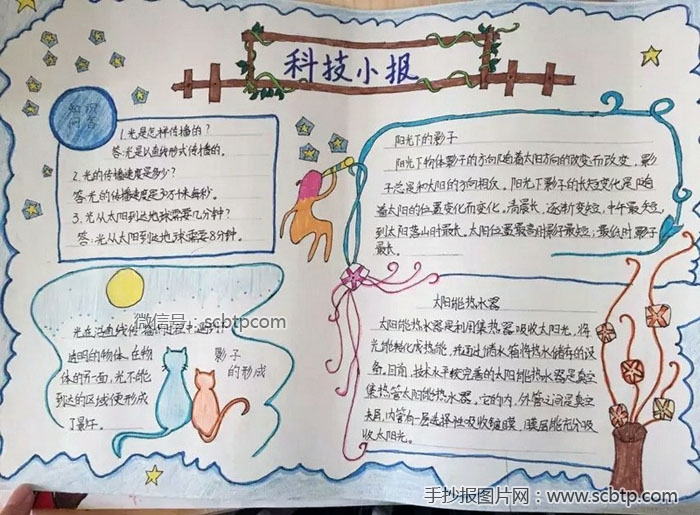 科技小报
知识
问答
1.光是怎样传播的？
答:光是以直线形式传播的。
2.光的传播速度是多少？
答:光的传播速度是30万千米每秒。
3.光从太阳到达地球需要几分钟？
答:光从太阳到达地球需要8分钟。
光在沿直线传播的过程中遇到不
透明的物体，在物
体的另一面，光不能
到达的区域便形成
了影子。
影子
的形成
阳光下的影子
阳光下物体影子的方向随着太阳方向的改变而改变，影
子总是和太阳的方向相反。阳光下影子的长短变化是随
着太阳的位置变化而变化。清晨长，逐渐变短，中午最短，
到太阳落山时最长。太阳位置最高时影子最短；最低时影子
最长。
太阳能热水器
太阳能热水器是利用集热器吸收太阳光，将
光能转化成热能，并通过储水箱将热水储存的设
备。目前，技术水平较完善的太阳能热水器是真空
集热管太阳能热水器。它的内、外管之间是真空
夹层，内管有一层选择性吸收镀膜，膜层能充分吸
收太阳光。
微信号：scbtpcom
手抄报图片网：www.scbtp.com